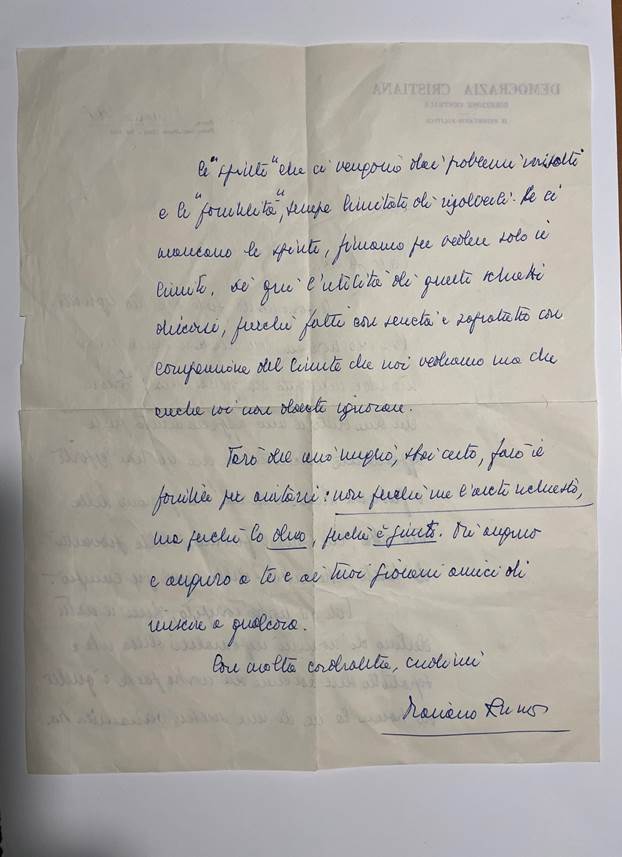 le "spinte" che ci vengono dai problemi irrisolti
e le "possibilità", sempre limitate di risolverli. Se ci
mancano le spinte, finiamo per vedere solo il
limite. Di qui l'utilità di questi schietti
discorsi, purché fatti con serietà e sopratutto con
comprensione del limite che noi vediamo ma che
anche voi non dovete ignorare.
Farò del mio meglio, stai certo, farò il
possibile per aiutarvi: non perché me l'avete richiesto,
ma perché lo devo, perché è giusto. Mi auguro
e auguro a te e ai tuoi giovani amici di
riuscire a qualcosa.
Con molta cordialità, credimi
Mariano Rumor
DEMOCRAZIA CRISTIANA
DIREZIONE CENTRALE
IL SEGRETARIO POLITICO